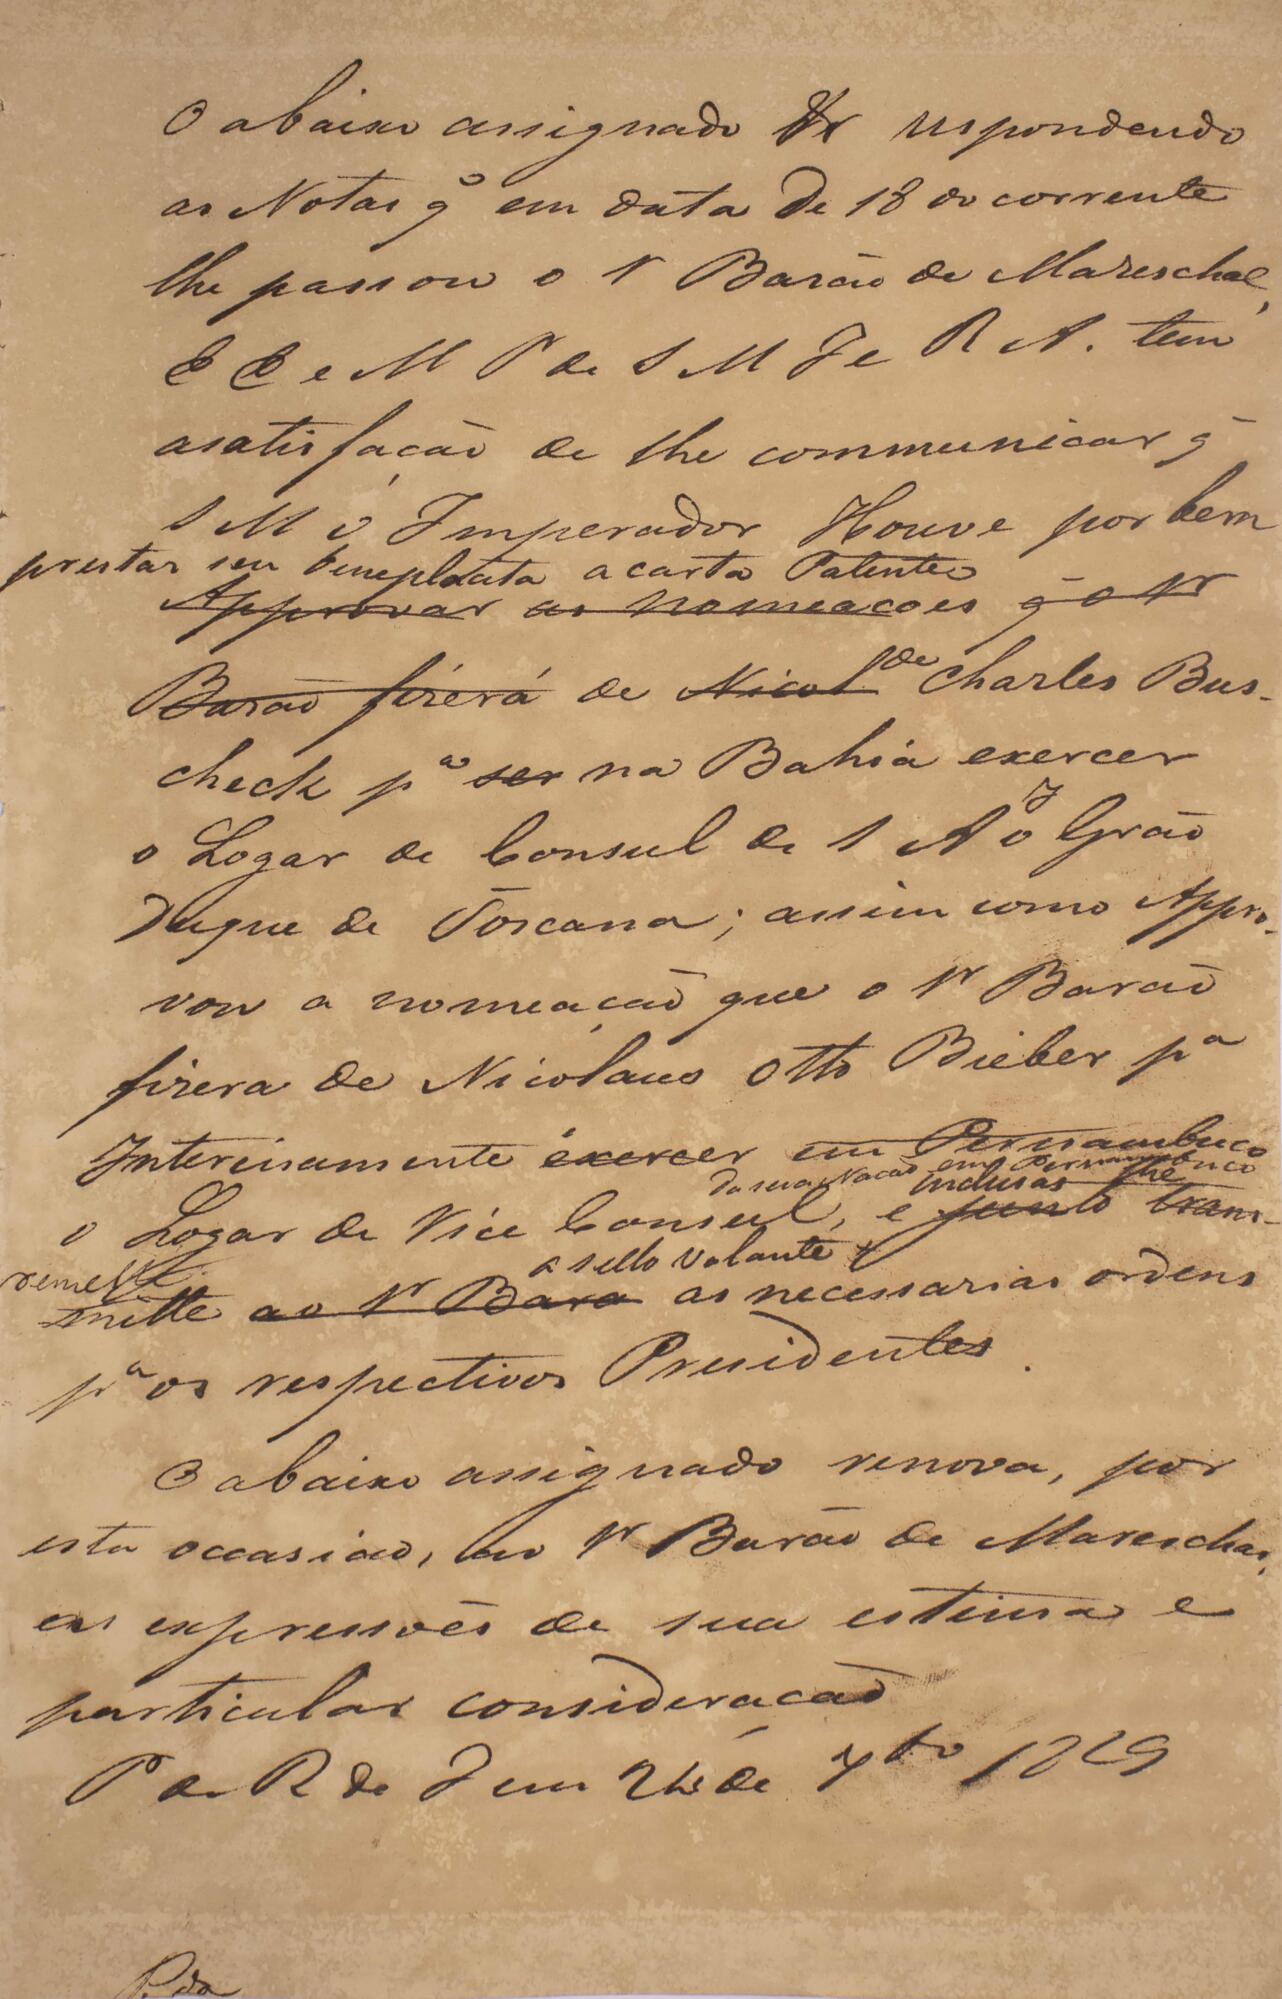 O abaixo assignado respondendo
as Notas q̃ em data de 18 do corrente
lhe passou o Sr Barão de Mareschal,
E E e M P de S M I e R A. tem
a satisfação de lhe communicar q̃
S M o Imperador Houve por bem
prestar seu beneplacito a carta Patente
Approvar as nomeacoes q̃ o Sr
Barão fizerá de Nicol de Charles Bus-
check pa ser na Bahia exercer
o Logar de Consul de S A I o Grão
Duque de Toscana; assim como Appro-
vou a nomeação que o Sr Barão
fizera de Nicolaus Otto Bieber pa
Interinamente exercer em Pernambuco
da sua Nacao em Pernambuco
inclusas lhe
o Logar de Vice Consul, e junto trans-
remette
a sello volante
mitte ao Sr Bara as necessarias ordens
pa os respectivos Presidentes.
O abaixo assignado renova, por
esta occasião, ao Sr Barão de Mareschal,
as expressões de sua estima e
particular consideração
P do R de J em 24 de 7bro 1829